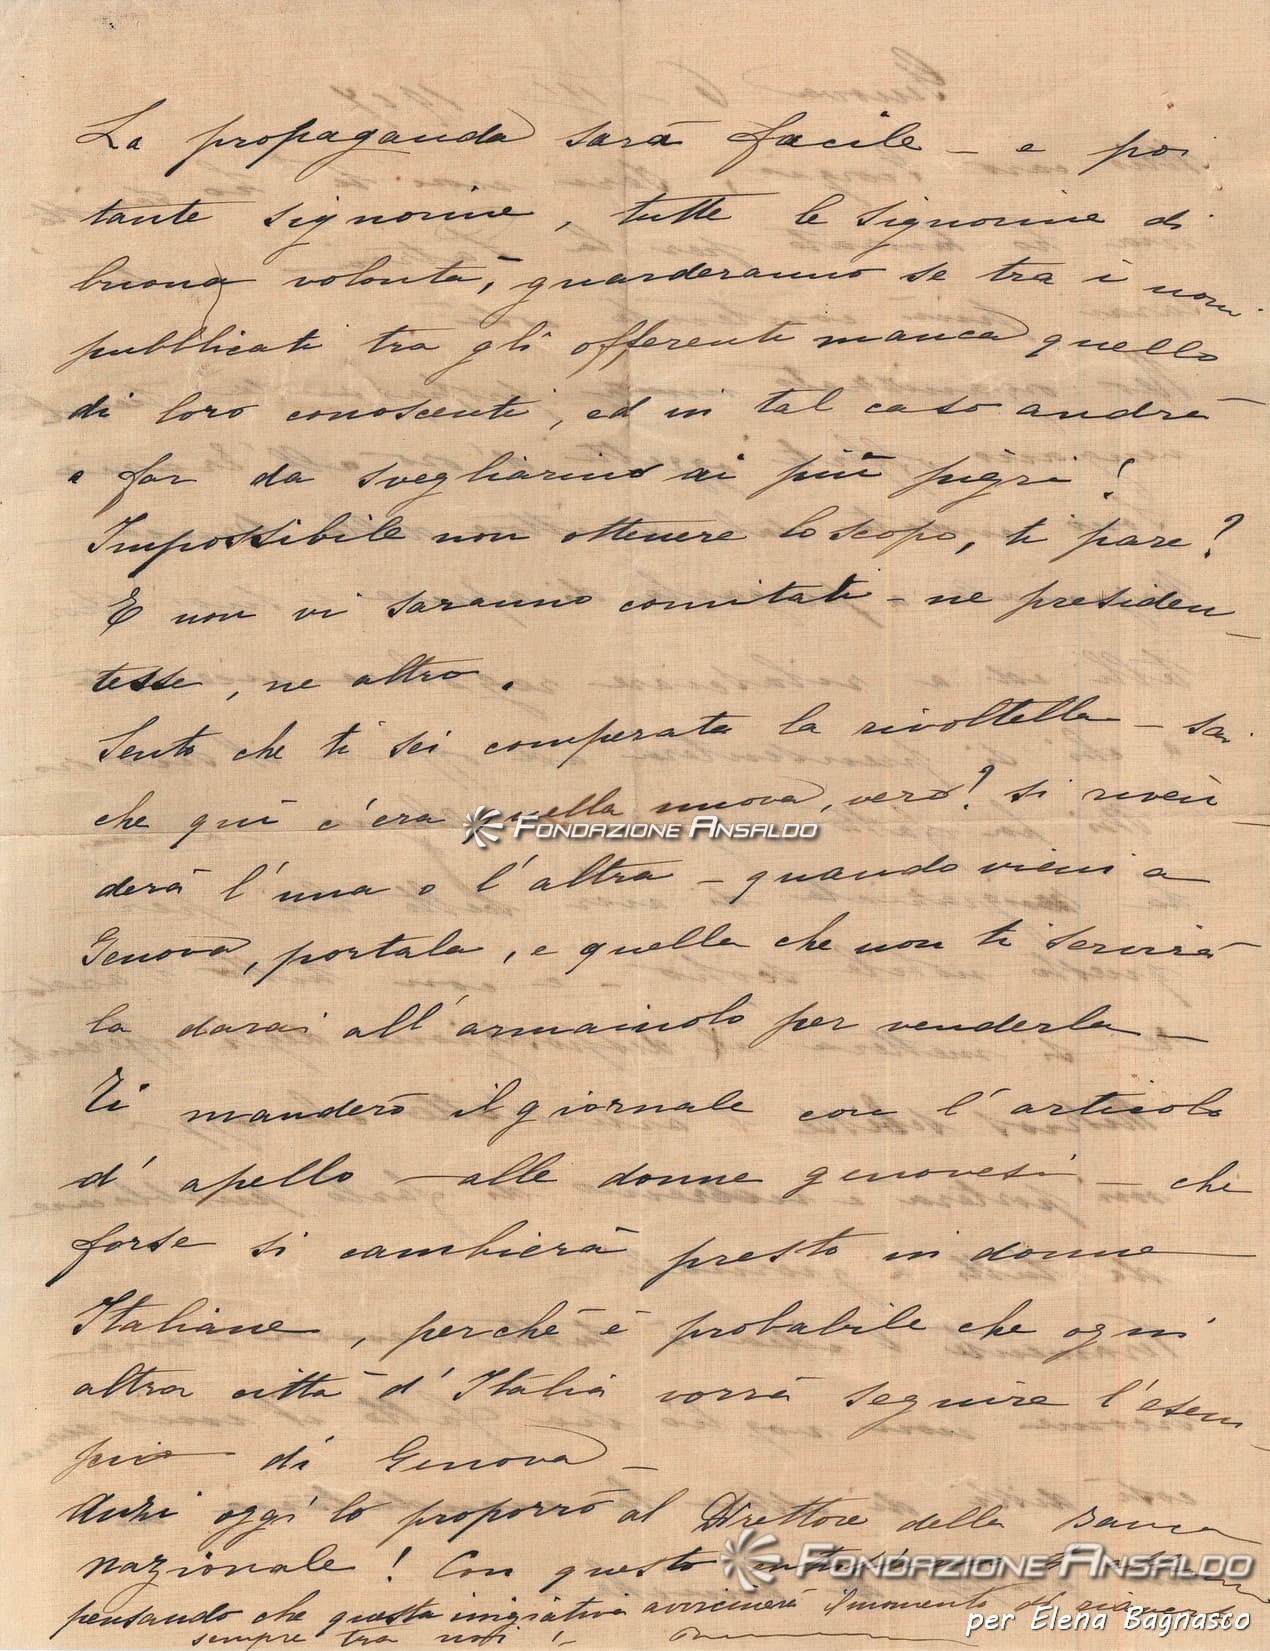 La propaganda sarà facile – e poi
tante signorine, tutte le signorine di
buona volontà, guarderanno se tra i nomi
pubblicati tra gli offerenti manca quello
di loro conoscenti, ed in tal caso andrà
a far da svegliarino ai più pigri!
Impossibile non ottenere lo scopo, ti pare?
E non vi saranno comitati – ne presiden
tesse, ne altro.
Sento che ti sei comperata la rivoltella – sai
che qui c'era quella nuova, vero? si riven
derà l'una o l'altra – quando vieni a
Genova, portala, e quella che non ti servirà
la darai all'armaiuolo per venderla –
Ti manderò il giornale con l'articolo
d'apello – alle donne genovesi – che
forse si cambierà presto in donne
Italiane, perchè è probabile che ogni
altra città d'Italia vorrà seguire l'esem
pio di Genova –
Anzi oggi lo proporrò al Direttore della Banca
nazionale! Con questo
pensando che questa inigiativa avvicinerà il momento di
sempre tra noi!
FONDAZIONE ANSALDO
FONDAZIONE ANSALDO
per Elena Bagnasco